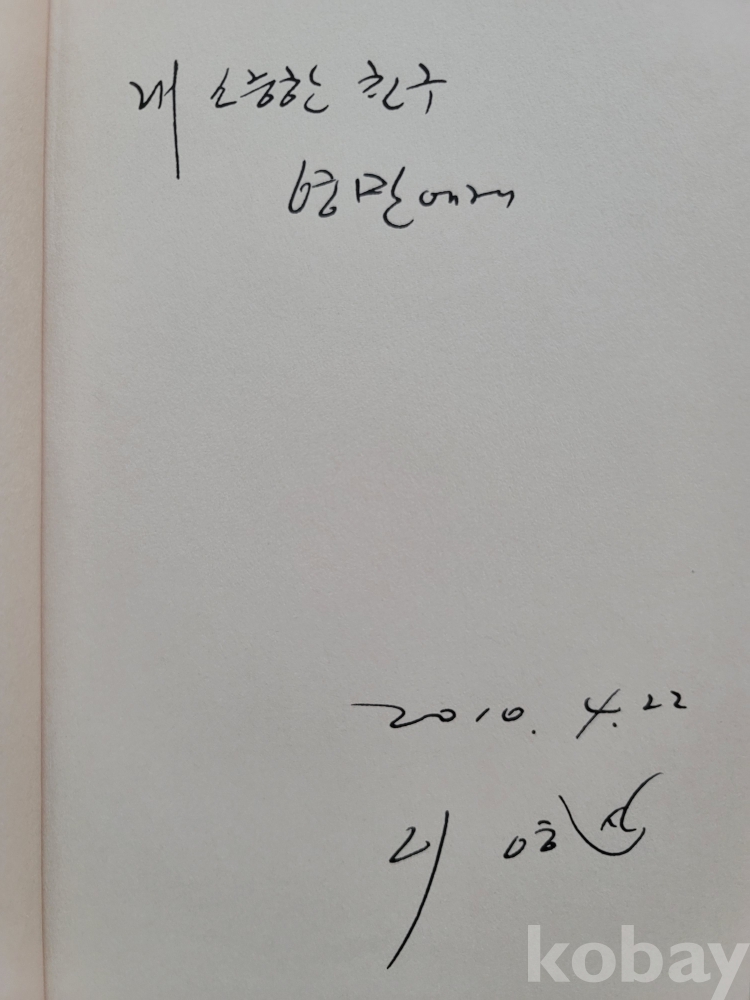 내 소중한 친구
영만에게
2010. 4. 22
kobay